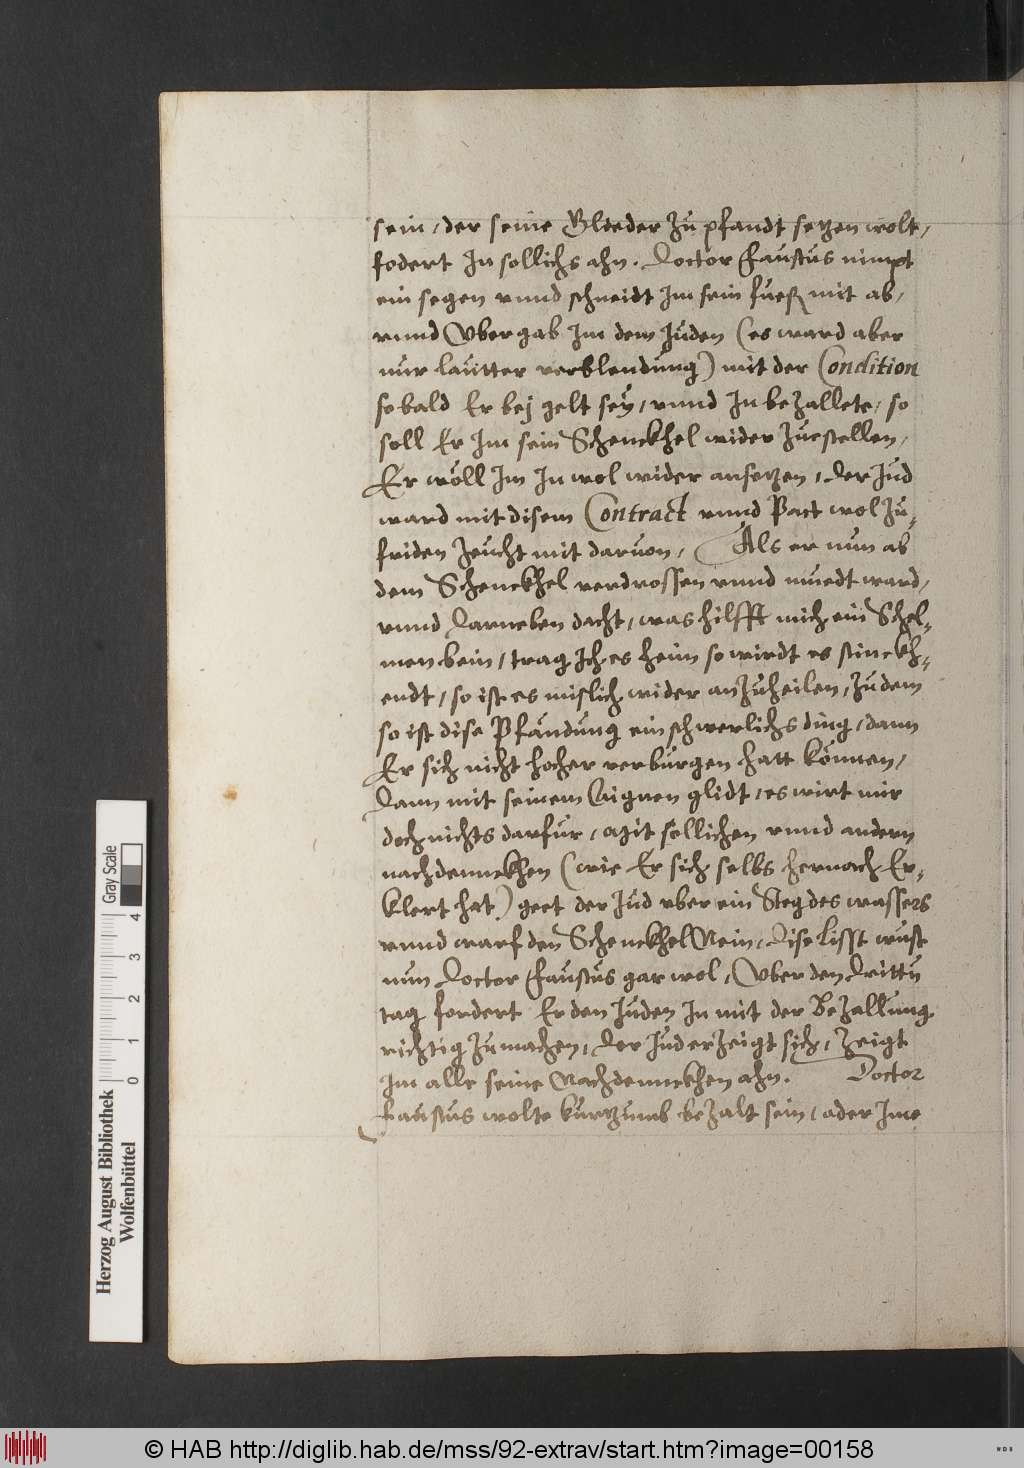 sein, der seine Glieder zu pfandt setzen wolt,
fodert In sollichs ahn. Doctor Faustus nimpt
ein segen vnnd schneidt Im sein fueß mit ab,
vnnd Vbergab Im dem Juden (es ward aber
nur lautter verblendung) mit der Condition
so bald Er bej gelt sey, vnnd In bezallete, so
soll Er Im sein Schenckhel wider zuestellen,
Er wöll Im In wol wider ansetzen, der Jud
ward mit disem Contract vnnd Pact wol zu-
friden zeucht mit daruon, Als er nun ab
dem Schenckhel verdrossen vnnd muedt ward,
vnnd darneben dacht, was hilfft mich ein Schel-
men bein, trag Ich es heim so wirdt es stinckh-
endt, so ist es mislich wider anzuheilen, zu dem
so ist dise Pfändung ein schwerlichs ding, dann
Er sich nicht hocher verbürgen hatt können,
dann mit seinem Aignen glidt, es wirt mir
doch nichts darfür, Mit sollichen vnnd andern
nachdennckhen (wie Er sich selbs hernach Er-
klert hat) geet der Jud vber ein Steg des wassers
vnnd warf den Schenckhel Nein, dise lisst wust
nun Doctor Faustus gar wol, Vber den dritten
tag fordert Er den Juden In mit der Bezallung
richtig zu machen, der Jud erzeigt sich, zeigt
Im alle seine Nachdennckhen ahn. Doctor
Faustus wolte kurtzumb bezalt sein, oder Ime
Herzog August Bibliothek
Wolfenbüttel
Gray Scale
0 1 2 3 4
© HAB http://diglib.hab.de/mss/92-extrav/start.htm?image=00158
WDB